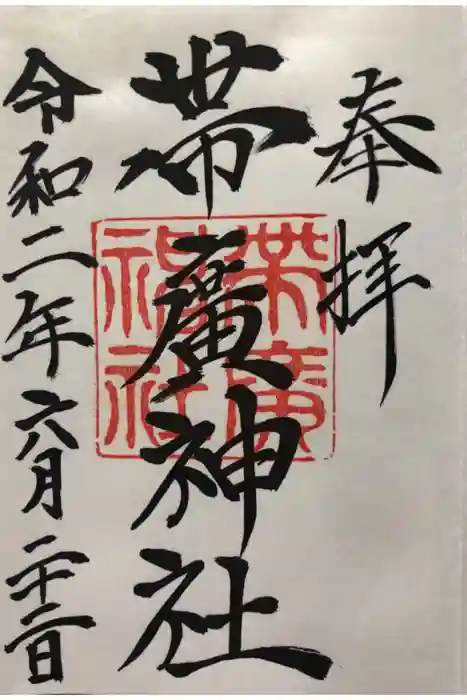 奉拝
帯廣神社
帯廣
神社
令和二年六月二十三日